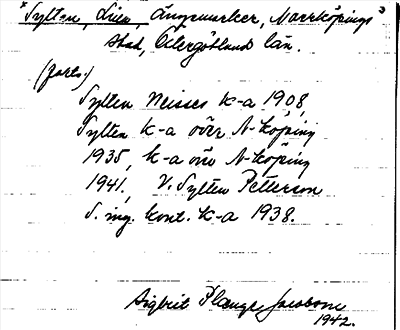 "Sylten, Lilla, Ängsmarker, Norrköpings
stad, Östergötlands län.
(forts.)
Sylten Neisses k-a 1908,
Sylten k-a över N-köping
1935, k-a över N-köping
1941, V. Sylten Petterson
S. ing. kont. k-a 1938.
Sigbrit Plange Jacobson
1942.